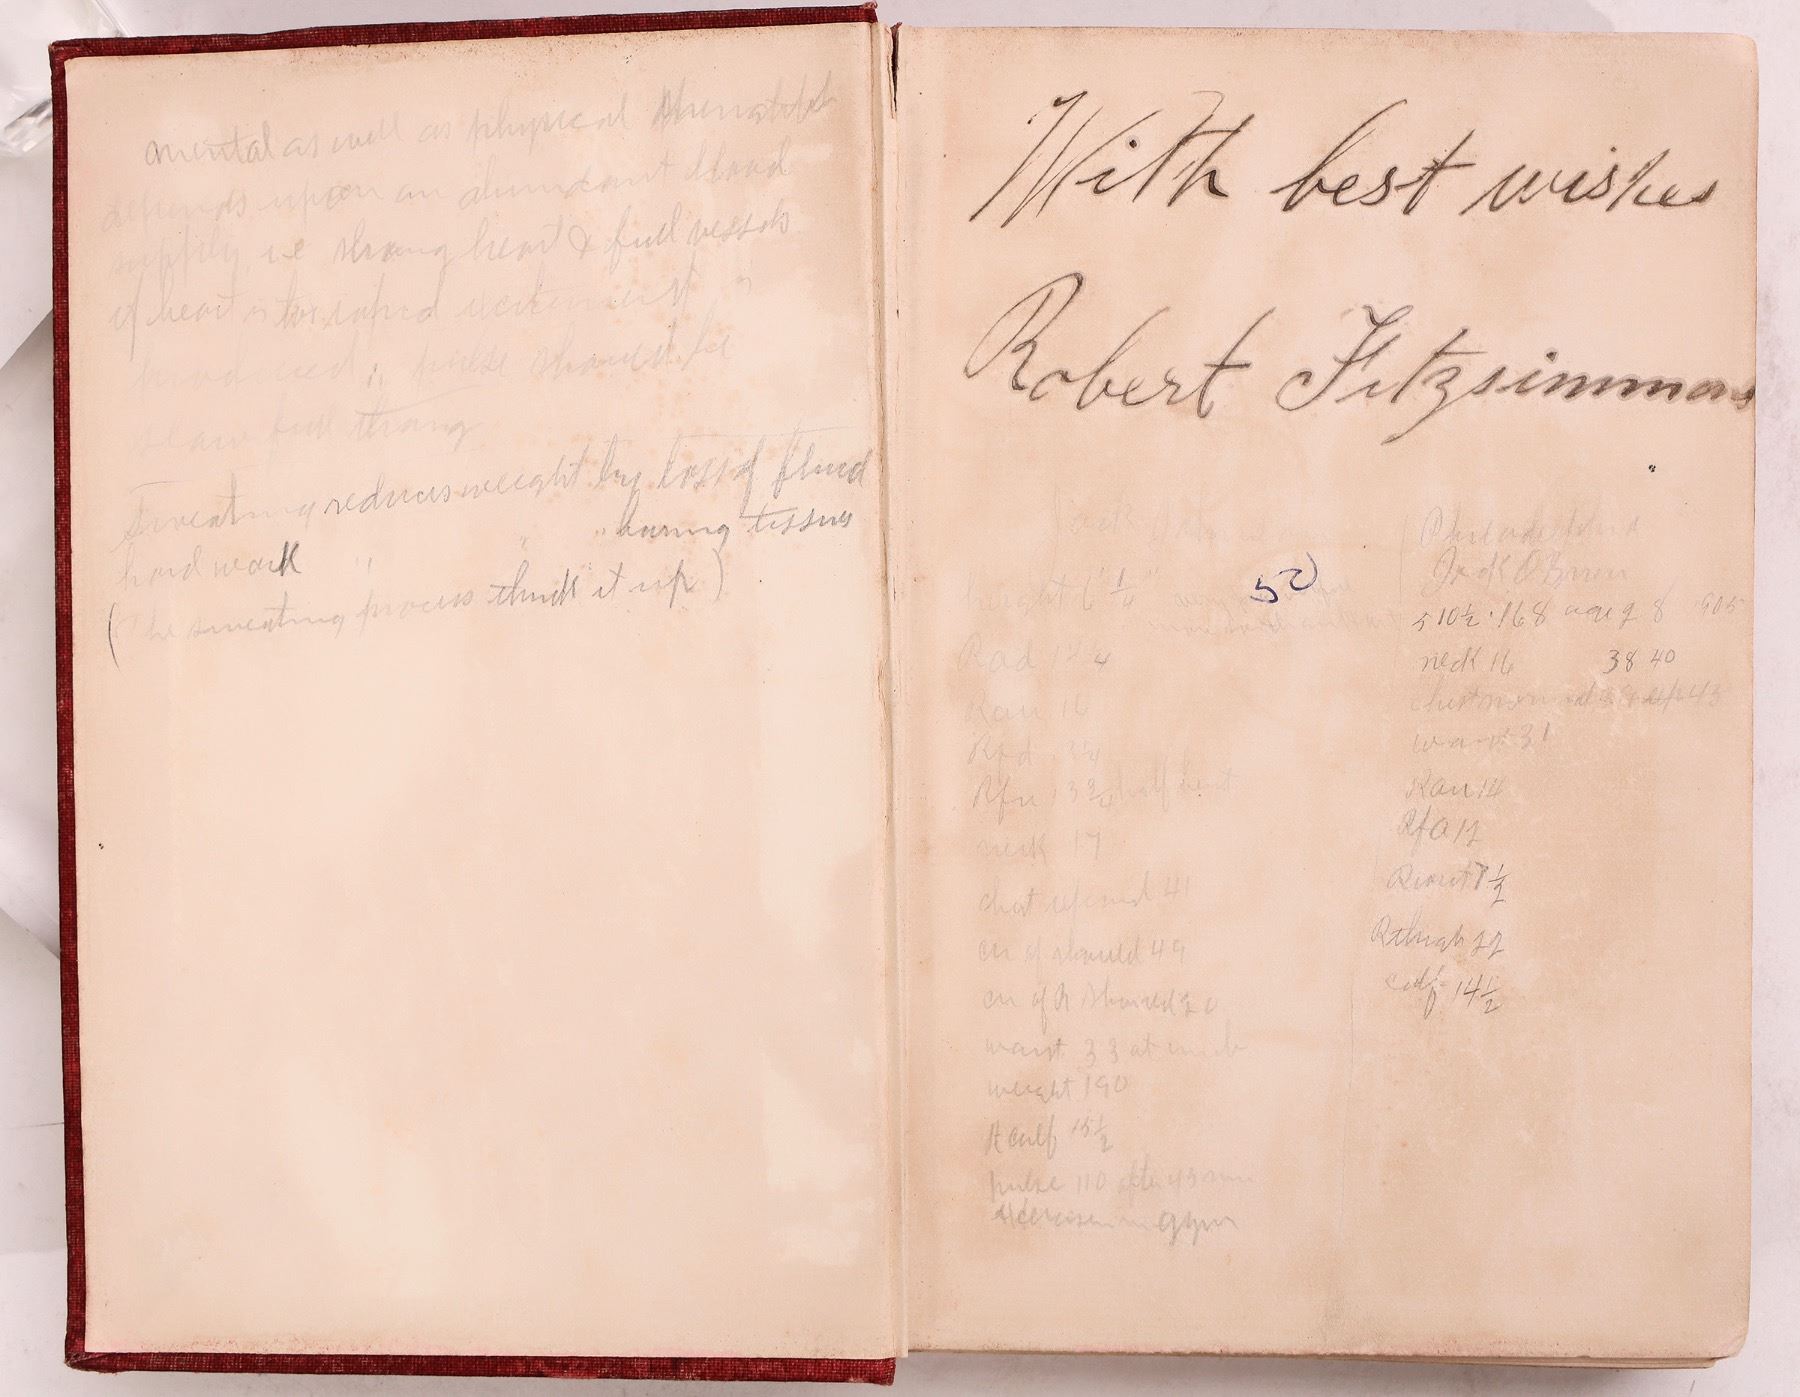 mental as well as physical strength
depends upon an abundant blood
supply, i.e. strong heart & full vessels
if heart is too rapid excitement is
produced ∴ pulse should be
slow full strong
Sweating reduces weight by loss of fluid
hard work " " burning tissues
(The sweating process thick it up)
With best wishes
Robert Fitzsimmons
50
Jack
height 6 1/4 very
Rad 12 4
Rau 16
Rfd
Rfu 13 3/4 half bent
neck 17
chest 41
cir of should 49
cir of R should 20
waist 33 at
weight 190
R calf 15 1/2
pulse 110 after 43 min
exercise in gym
Philadelphia
Jack OBrien
5 10 1/2 · 168 aug 8 1905
neck 16 38 40
chest normal 38 43
waist 31
Rau 14
Rfa 12
R wrist 7 1/2
R thigh 22
calf 14 1/2